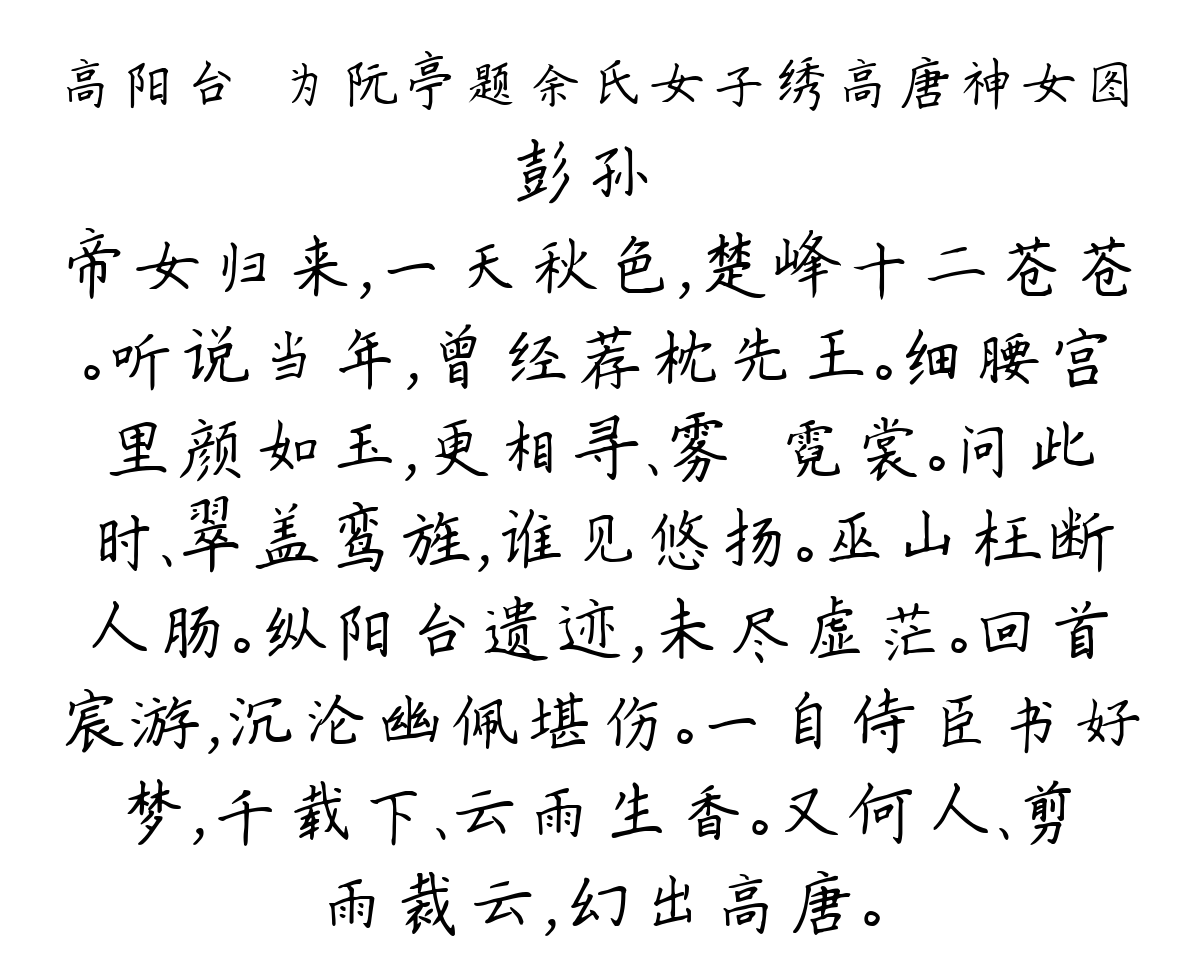 高阳台 为阮亭题余氏女子绣高唐神女图
彭孙
帝女归来,一天秋色,楚峰十二苍苍
。听说当年,曾经荐枕先王。细腰宫
里颜如玉,更相寻、雾 霓裳。问此
时、翠盖鸾旌,谁见悠扬。巫山枉断
人肠。纵阳台遗迹,未尽虚茫。回首
宸游,沉沦幽佩堪伤。一自侍臣书好
梦,千载下、云雨生香。又何人、剪
雨裁云,幻出高唐。